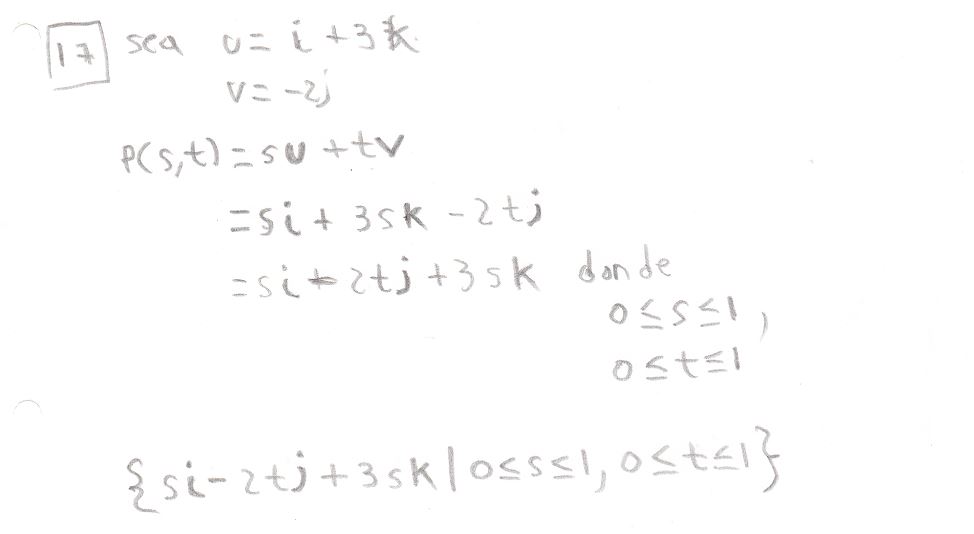 17 sea u = i + 3k
v = -2j
P(s,t) = su + tv
= si + 3sk - 2tj
= si - 2tj + 3sk donde
0 ≤ s ≤ 1,
0 ≤ t ≤ 1
{si - 2tj + 3sk | 0 ≤ s ≤ 1, 0 ≤ t ≤ 1}